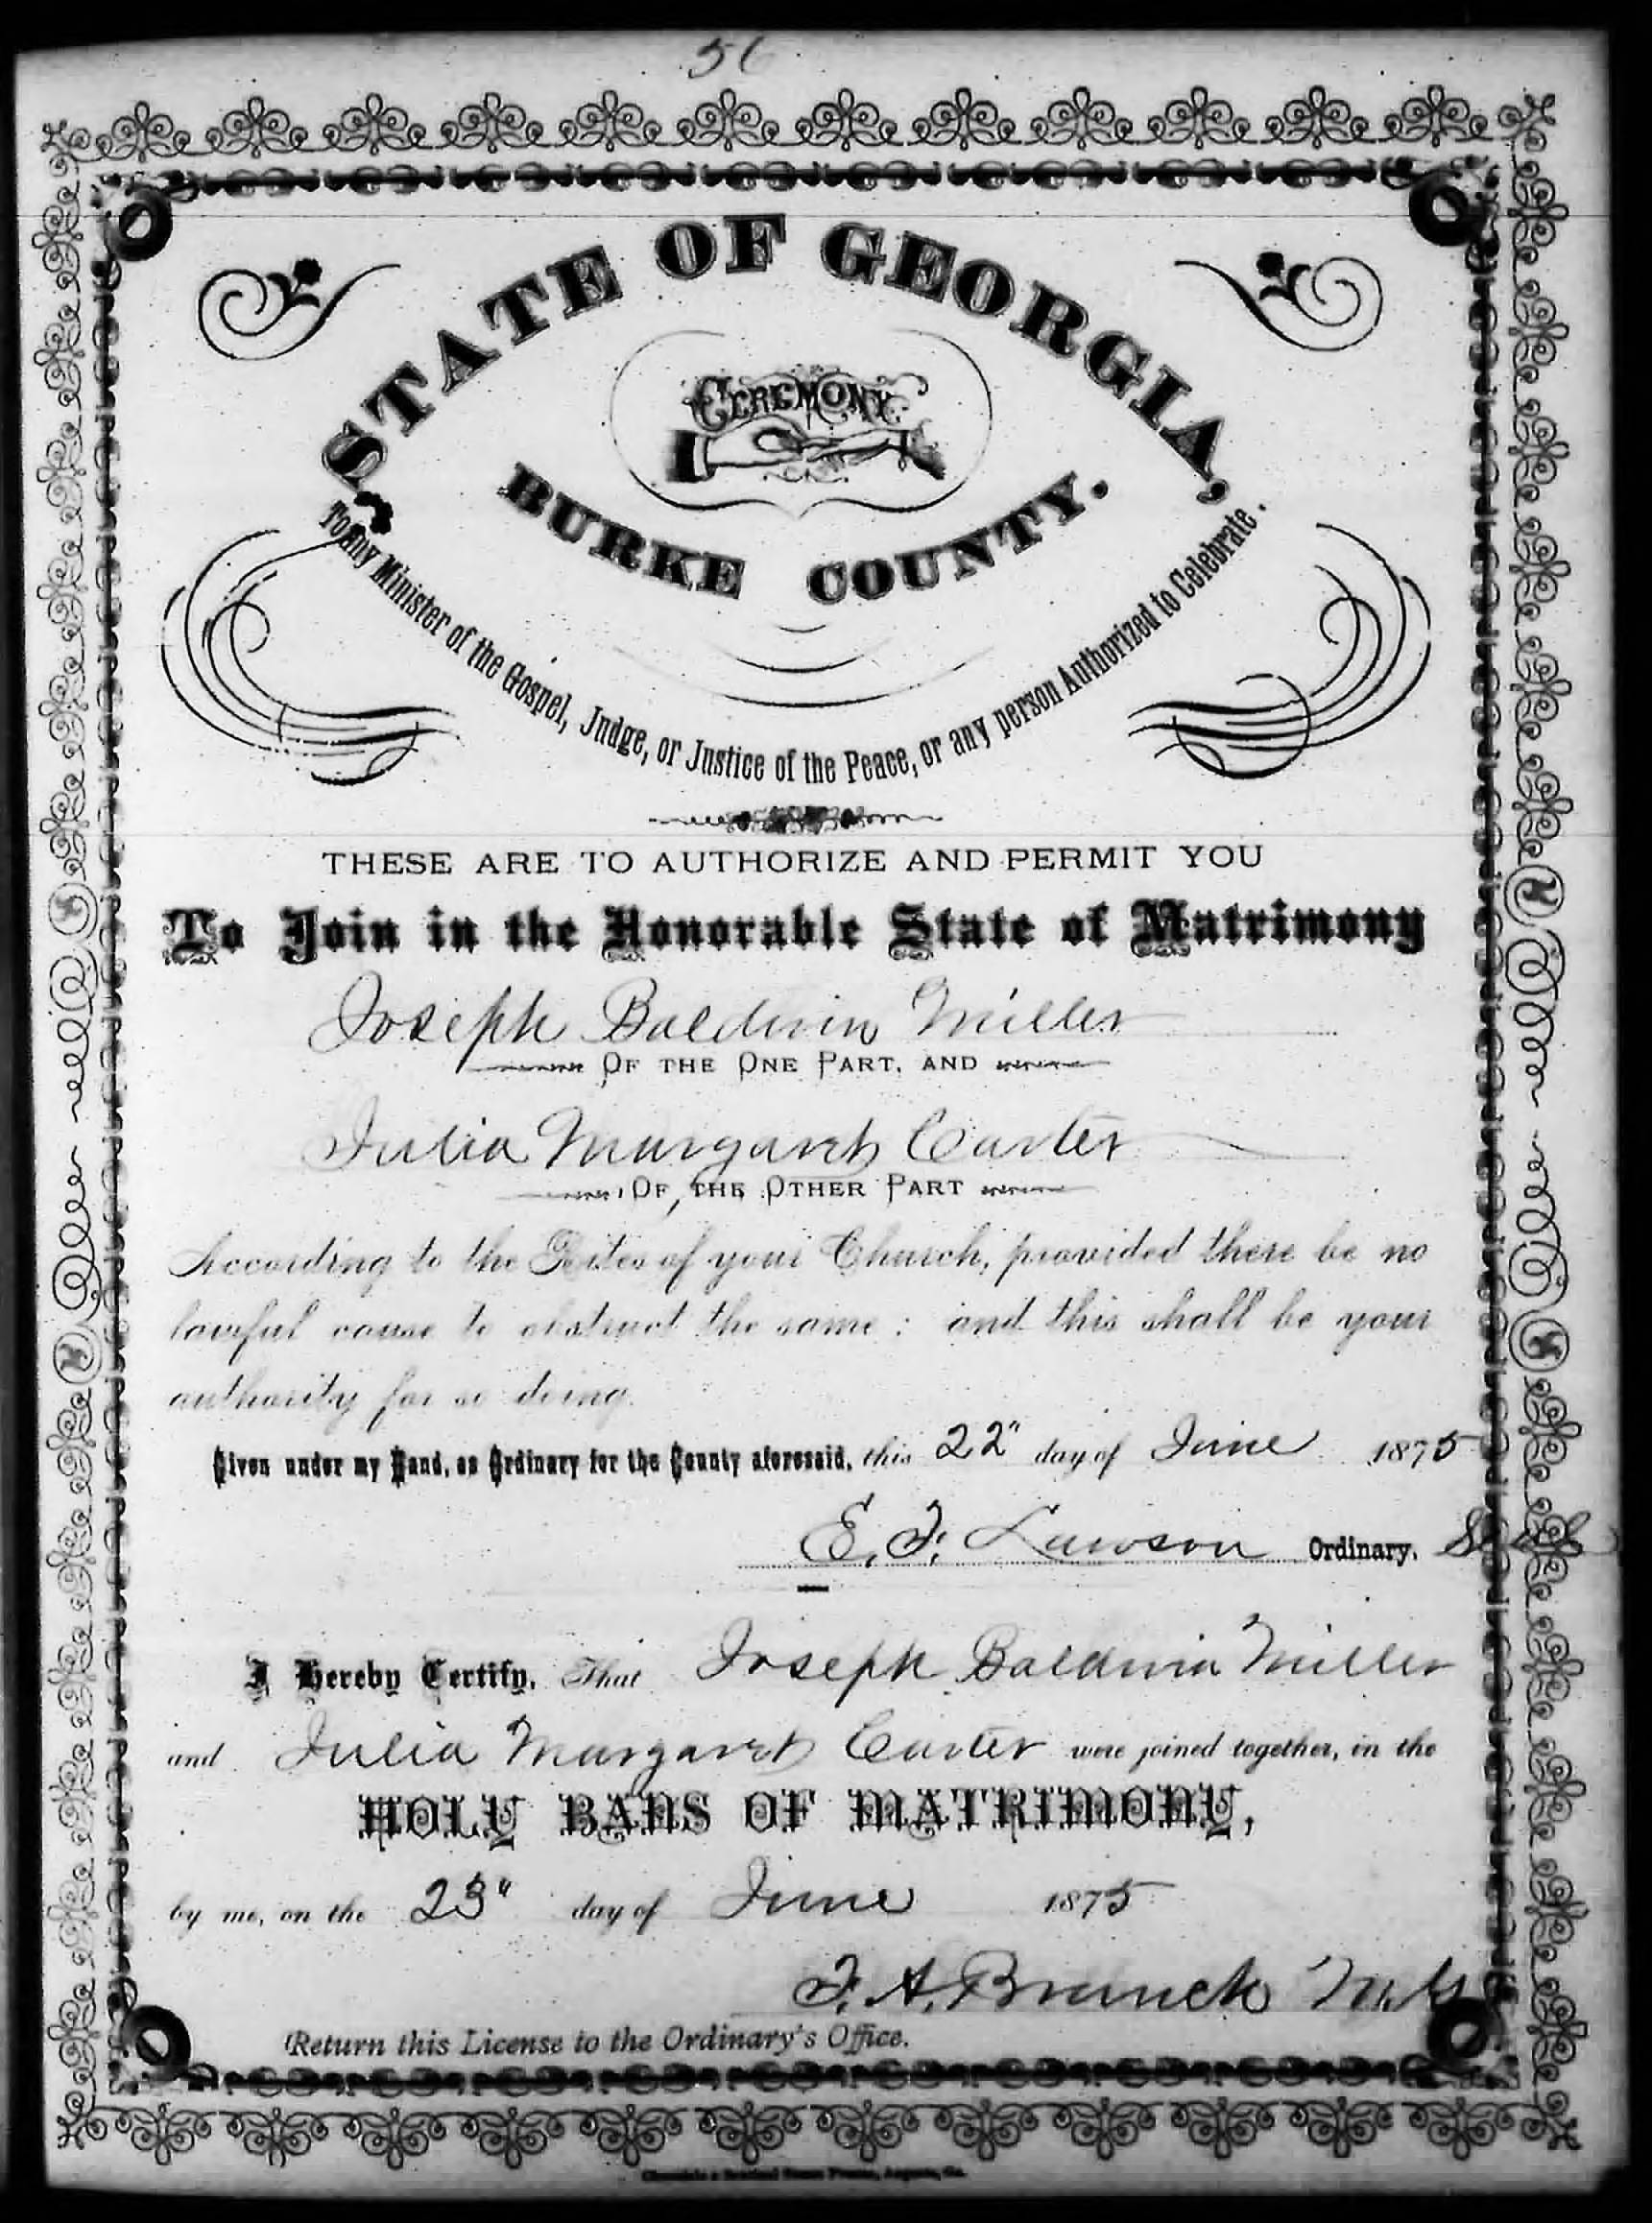 56
STATE OF GEORGIA,
CEREMONY.
BURKE COUNTY.
To any Minister of the Gospel, Judge, or Justice of the Peace, or any person Authorized to Celebrate.
THESE ARE TO AUTHORIZE AND PERMIT YOU
To Join in the Honorable State of Matrimony
Joseph Baldwin Miller
OF THE ONE PART, AND
Julia Margaret Carter
OF THE OTHER PART
According to the Rites of your Church, provided there be no
lawful cause to obstruct the same: and this shall be your
authority for so doing.
Given under my Hand, as Ordinary for the County aforesaid, this 22" day of June 1875
E. F. Lawson Ordinary,
I Hereby Certify, That Joseph Baldwin Miller
and Julia Margaret Carter were joined together, in the
HOLY BANS OF MATRIMONY,
by me, on the 23" day of June 1875
F. A. Branch M. G.
Return this License to the Ordinary's Office.